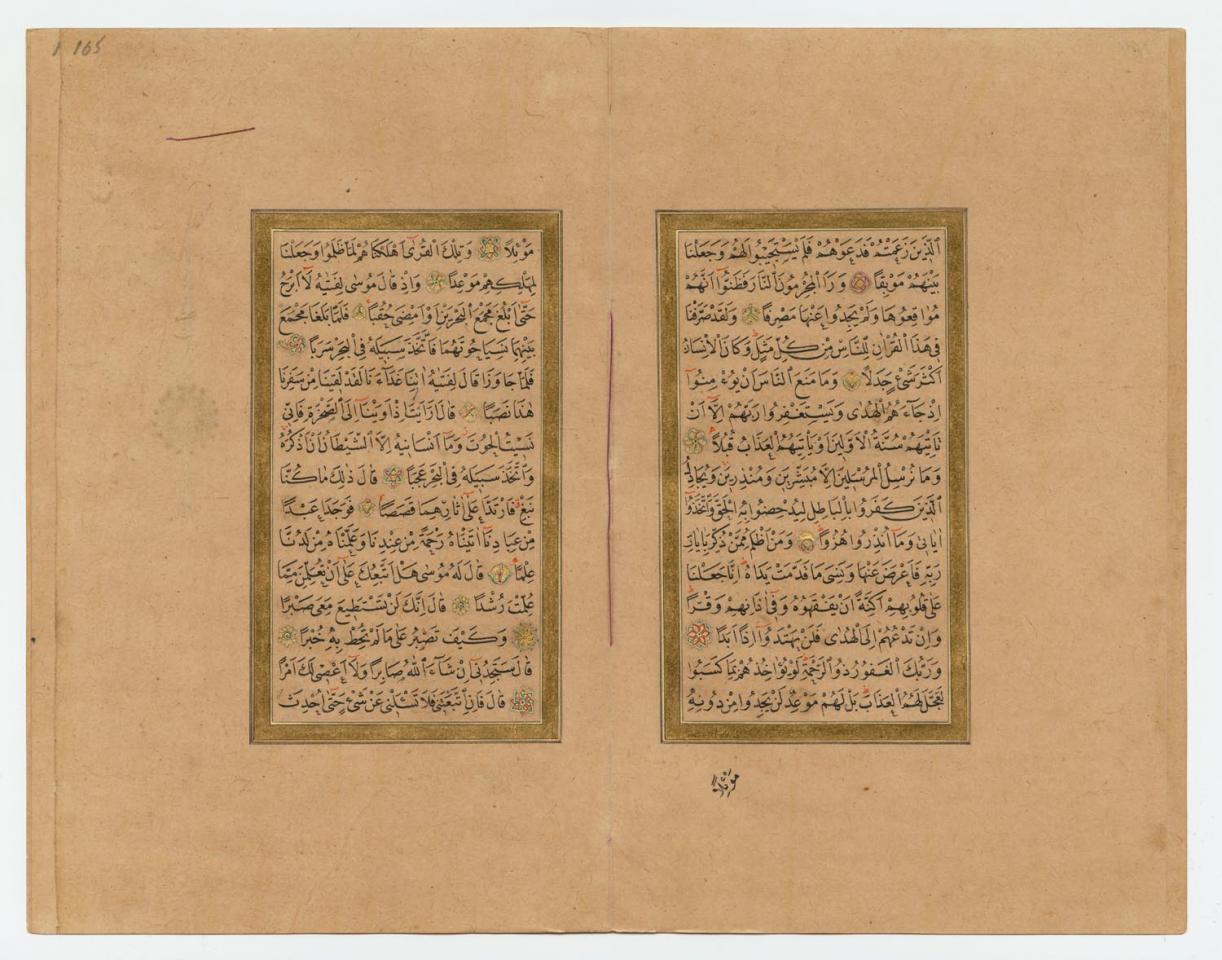 1 165
ٱلَّذِينَ زَعَمْتُمْ فَدَعَوْهُمْ فَلَمْ يَسْتَجِيبُوا لَهُمْ وَجَعَلْنَا
بَيْنَهُمْ مَوْبِقًا وَرَاَ الْمُجْرِمُونَ النَّارَ فَظَنُّوا اَنَّهُمْ
مُوَاقِعُوهَا وَلَمْ يَجِدُوا عَنْهَا مَصْرِفًا وَلَقَدْ صَرَّفْنَا
فِى هٰذَا الْقُرْاٰنِ لِلنَّاسِ مِنْ كُلِّ مَثَلٍ وَكَانَ الْاِنْسَانُ
اَكْثَرَ شَىْءٍ جَدَلًا وَمَا مَنَعَ النَّاسَ اَنْ يُؤْمِنُوا
اِذْ جَاءَهُمُ الْهُدٰى وَيَسْتَغْفِرُوا رَبَّهُمْ اِلَّا اَنْ
تَاْتِيَهُمْ سُنَّةُ الْاَوَّلِينَ اَوْ يَاْتِيَهُمُ الْعَذَابُ قُبُلًا
وَمَا نُرْسِلُ الْمُرْسَلِينَ اِلَّا مُبَشِّرِينَ وَمُنْذِرِينَ وَيُجَادِلُ
الَّذِينَ كَفَرُوا بِالْبَاطِلِ لِيُدْحِضُوا بِهِ الْحَقَّ وَاتَّخَذُوا
اٰيَاتِى وَمَا اُنْذِرُوا هُزُوًا وَمَنْ اَظْلَمُ مِمَّنْ ذُكِّرَ بِاٰيَاتِ
رَبِّهِ فَاَعْرَضَ عَنْهَا وَنَسِىَ مَا قَدَّمَتْ يَدَاهُ اِنَّا جَعَلْنَا
عَلٰى قُلُوبِهِمْ اَكِنَّةً اَنْ يَفْقَهُوهُ وَفِى اٰذَانِهِمْ وَقْرًا
وَاِنْ تَدْعُهُمْ اِلَى الْهُدٰى فَلَنْ يَهْتَدُوا اِذًا اَبَدًا
وَرَبُّكَ الْغَفُورُ ذُو الرَّحْمَةِ لَوْ يُؤَاخِذُهُمْ بِمَا كَسَبُوا
لَعَجَّلَ لَهُمُ الْعَذَابَ بَلْ لَهُمْ مَوْعِدٌ لَنْ يَجِدُوا مِنْ دُونِهِ
مَوْئِلًا
مَوْئِلًا وَتِلْكَ الْقُرٰى اَهْلَكْنَاهُمْ لَمَّا ظَلَمُوا وَجَعَلْنَا
لِمَهْلِكِهِمْ مَوْعِدًا وَاِذْ قَالَ مُوسٰى لِفَتٰيهُ لَا اَبْرَحُ
حَتّٰى اَبْلُغَ مَجْمَعَ الْبَحْرَيْنِ اَوْ اَمْضِىَ حُقُبًا فَلَمَّا بَلَغَا مَجْمَعَ
بَيْنِهِمَا نَسِيَا حُوتَهُمَا فَاتَّخَذَ سَبِيلَهُ فِى الْبَحْرِ سَرَبًا
فَلَمَّا جَاوَزَا قَالَ لِفَتٰيهُ اٰتِنَا غَدَاءَنَا لَقَدْ لَقِينَا مِنْ سَفَرِنَا
هٰذَا نَصَبًا قَالَ اَرَاَيْتَ اِذْ اَوَيْنَا اِلَى الصَّخْرَةِ فَاِنِّى
نَسِيتُ الْحُوتَ وَمَا اَنْسَانِيهُ اِلَّا الشَّيْطَانُ اَنْ اَذْكُرَهُ
وَاتَّخَذَ سَبِيلَهُ فِى الْبَحْرِ عَجَبًا قَالَ ذٰلِكَ مَا كُنَّا
نَبْغِ فَارْتَدَّا عَلٰى اٰثَارِهِمَا قَصَصًا فَوَجَدَا عَبْدًا
مِنْ عِبَادِنَا اٰتَيْنَاهُ رَحْمَةً مِنْ عِنْدِنَا وَعَلَّمْنَاهُ مِنْ لَدُنَّا
عِلْمًا قَالَ لَهُ مُوسٰى هَلْ اَتَّبِعُكَ عَلٰى اَنْ تُعَلِّمَنِ مِمَّا
عُلِّمْتَ رُشْدًا قَالَ اِنَّكَ لَنْ تَسْتَطِيعَ مَعِىَ صَبْرًا
وَكَيْفَ تَصْبِرُ عَلٰى مَا لَمْ تُحِطْ بِهِ خُبْرًا
قَالَ سَتَجِدُنِى اِنْ شَاءَ اللّٰهُ صَابِرًا وَلَا اَعْصِى لَكَ اَمْرًا
قَالَ فَاِنِ اتَّبَعْتَنِى فَلَا تَسْئَلْنِى عَنْ شَىْءٍ حَتّٰى اُحْدِثَ